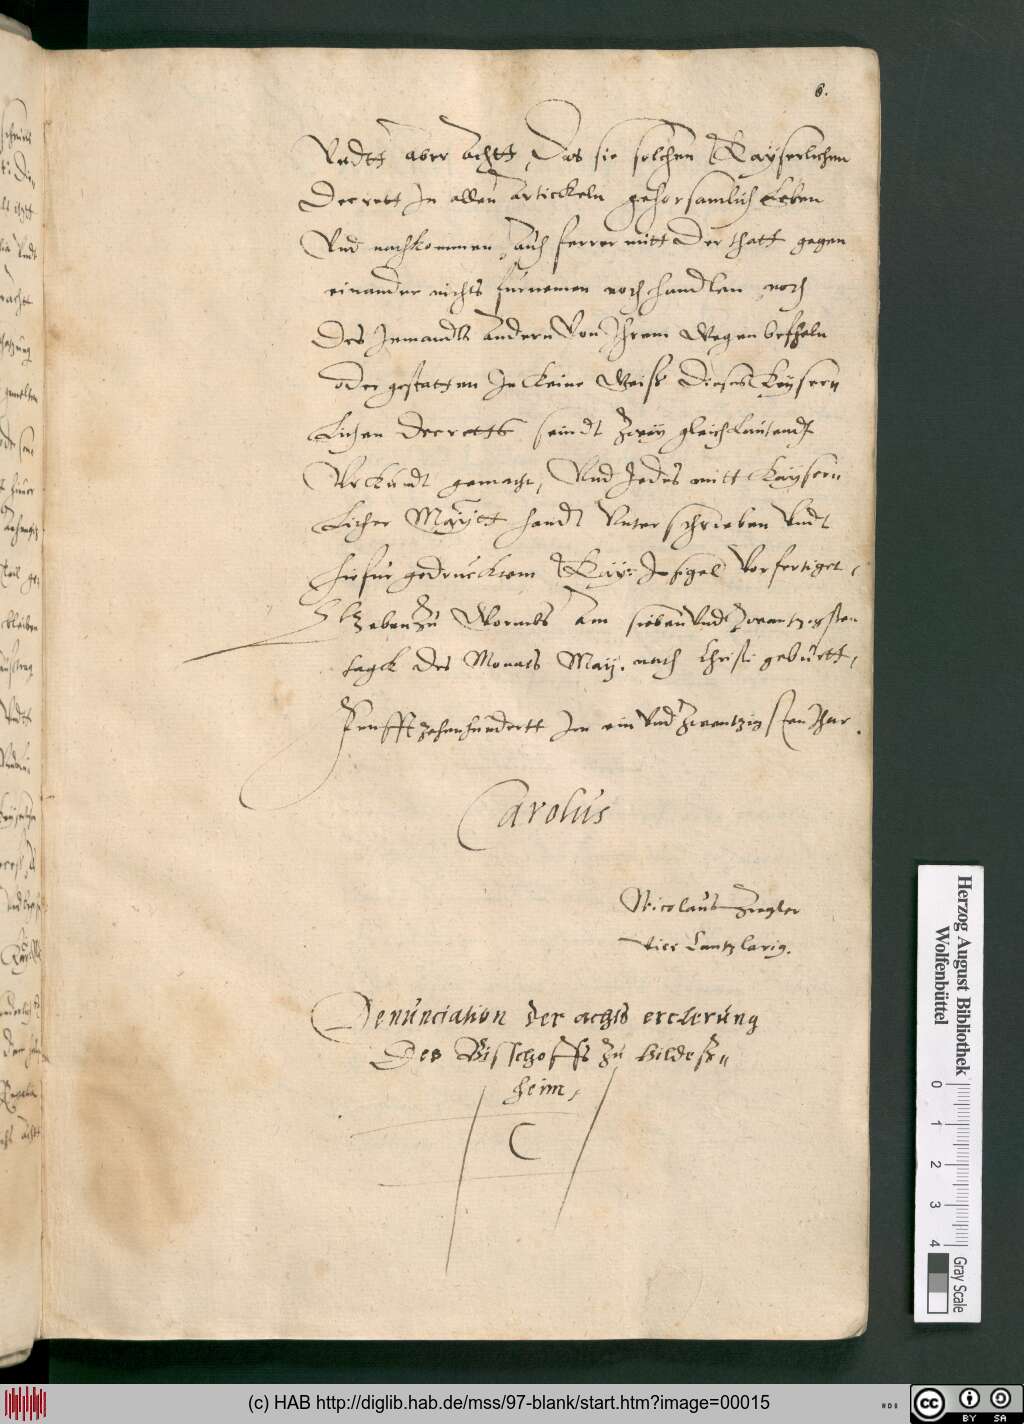 6.
Undtt aber achtt, Das sie solchen Kayserlichen
Decrett In allen artickeln gehorsamlich Leben
Und nachkommen, auch ferrer mitt Der thatt gegen
einander nichts furnemen noch handlen, noch
Des Jemandts andern Von Ihrem Wegen befheln
oder gestatten In keine Weiss Dieses Keysern
Lichen Decretts seindt zwey gleichlautendt
Urkundt gemacht, Und Jedes mitt Kaysern
Licher Maÿtt handt Unterschrieben Undt
hiefur gedrucktem Kay: Insigel Vorfertiget,
Geben zu Wormbs Am sieben Undt zwantzigsten
tagk des Monats Maÿ. nach Christi geburtt,
Funfftzehenhundertt Im ein Und zwantzigsten Ihar.
Carolus
Nicolaus Ziegler
Vice Cantzlarig.
Denunciation der achts erclerung
Des Bisschoffs zu Hildess„
heim,
C
Herzog August Bibliothek
Wolfenbüttel
0 1 2 3 4
Gray Scale
(c) HAB http://diglib.hab.de/mss/97-blank/start.htm?image=00015
cc BY SA